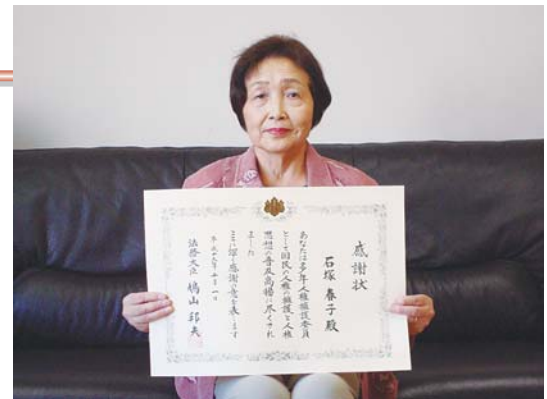 感謝状
石塚 春子 殿
あなたは多年人権擁護委員
として国民の人権の擁護と人権
思想の普及高揚に尽くされ
ました
ここに深く感謝の意を表します
平成十九年十月一日
法務大臣 鳩山 邦夫